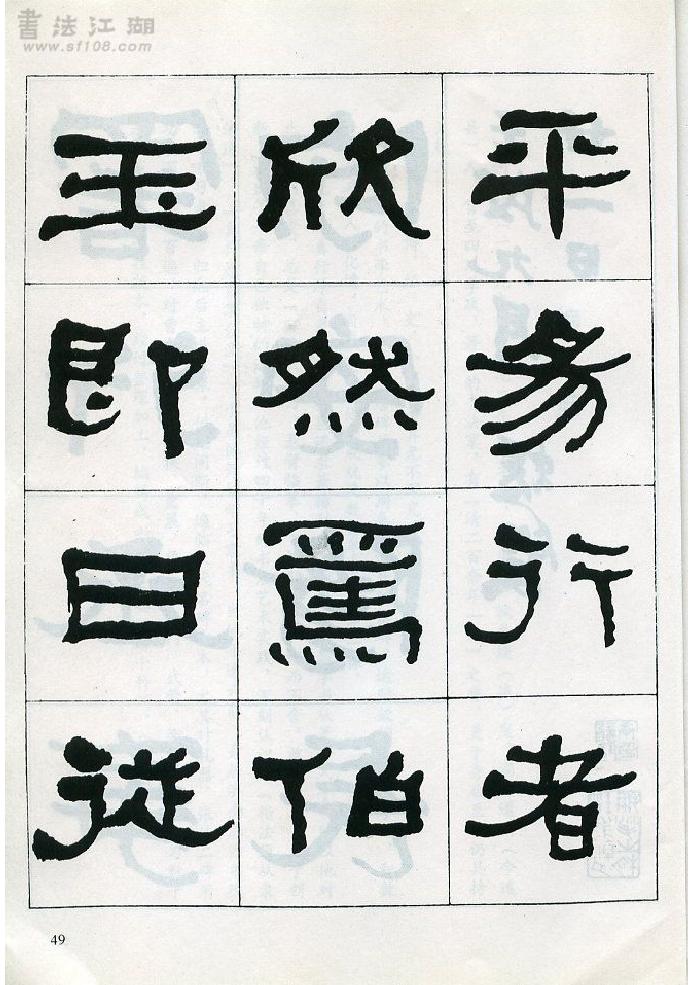 書法江湖
www.sf108.com
平易行者
欣然焉伯
玉即日徙
49